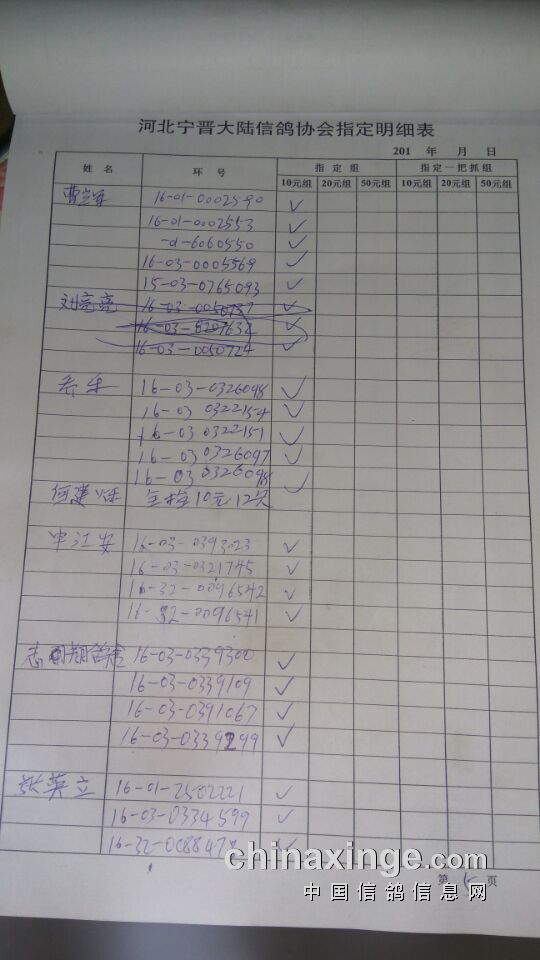 河北宁晋大陆信鸽协会指定明细表
201 年 月 日
姓 名 环 号 指 定 组 指定一把抓组
10元组 20元组 50元组 10元组 20元组 50元组
16-01-0002590 ✓
16-01-0002553 ✓
-01-6060550 ✓
16-03-0005569 ✓
15-03-0765093 ✓
刘亮亮 16-03-0050737 ✓
16-03-0207632 ✓
16-03-0050724 ✓
16-03-0326098 ✓
16-03 0322154 ✓
16-03 0322151 ✓
16-03 0326097 ✓
16-03 0326098 ✓
何建 全指10元12关
申江安 16-03-0393023 ✓
16-03-0321745 ✓
16-32-0096542 ✓
16-32-0096541 ✓
16-03-0339300 ✓
16-03-0339109 ✓
16-03-0391067 ✓
16-03-0339299 ✓
张英立 16-01-2502221 ✓
16-03-0334599 ✓
16-32-0088478 ✓
第 5 页
chinaxinge.com
中国信鸽信息网